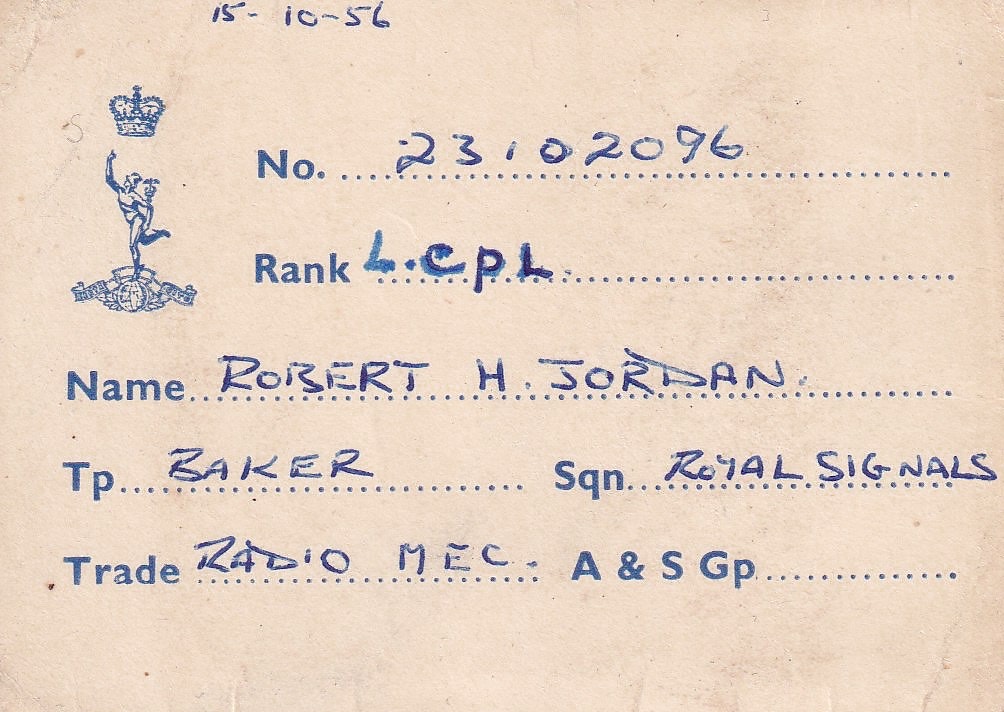 15-10-56
No. 23102096
Rank L.CPL.
Name ROBERT H. JORDAN.
Tp BAKER Sqn ROYAL SIGNALS
Trade RADIO MEC. A & S Gp